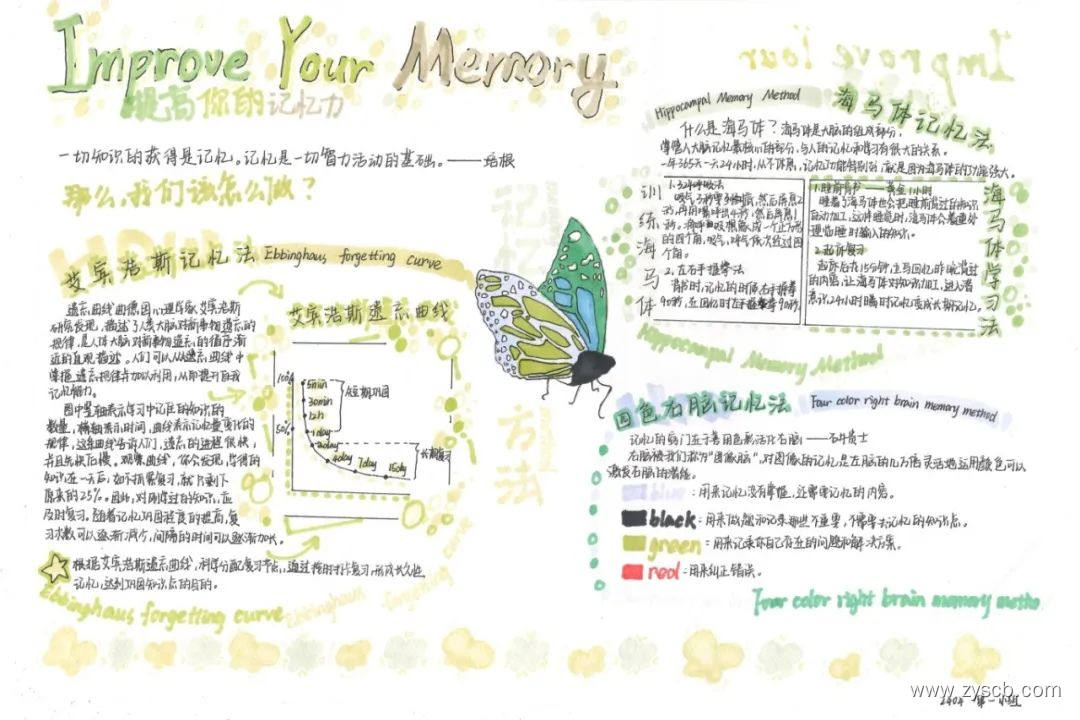 Improve Your Memory
提高你的记忆力
一切知识的获得是记忆。记忆是一切智力活动的基础。——培根
那么,我们该怎么做?
艾宾浩斯记忆法 Ebbinghaus forgetting curve
遗忘曲线由德国心理学家艾宾浩斯
研究发现,描述了人类大脑对新事物遗忘的
规律,是人体大脑对新事物遗忘的循序渐
进的直观描述。人们可以从遗忘曲线中
掌握遗忘规律并加以利用,从而提升自我
记忆能力。
图中竖轴表示学习中记住的知识的
数量,横轴表示时间,曲线表示记忆量变化的
规律,这条曲线告诉人们,遗忘的进程很快,
并且先快后慢。观察曲线,你会发现,学得的
知识在一天后,如不抓紧复习,就只剩下
原来的25%。因此,对刚学过的知识,应
及时复习。随着记忆巩固程度的提高,复
习次数可以逐渐减少,间隔的时间可以逐渐加长。
根据艾宾浩斯遗忘曲线,科学分配复习节点,通过按时
记忆,达到巩固知识点的目的。
Ebbinghaus forgetting curve
Ebbinghaus forgetting curve
艾宾浩斯遗忘曲线
100%
50%
5min
30min
12h
1day
2day
4day
7day
15day
短期巩固
长期复习
记忆
方法
Improve Your
Hippocampal Memory Method 海马体记忆法
什么是海马体?海马体是大脑的组成部分,
掌管人大脑记忆最核心的部分,与人的记忆和学习有很大的关系。
一年365天一天24小时,从不休息,记忆功能特别好,就是因为海马体的功能强大。
训练海马体
吸气
的四个角,吸气,呼气依次经过四
个角。
2、左右手握拳法
背书时,记忆的时候右手握拳
90秒,在回忆时左手握拳90秒。
1.睡前背书——黄金1小时
睡着了海马体也会把睡前背过的知识
自动加工,这样睡觉时,海马体会着重处
理临睡时输入的知识。
2.起床复习
起床后花15分钟,立马回忆昨晚背过
的内容,让海马体对知识加工,进入潜
意识,24小时瞬时记忆变成长期记忆。
海马体学习法
Hippocampal Memory Method
四色右脑记忆法 Four color right brain memory method
记忆的窍门在于善用色彩活化右脑——石井贵士
右脑被我们称为“图像脑”,对图像的记忆是左脑的几万倍灵活地运用颜色可以
激发右脑的潜能。
blue:用来记忆没有掌握,还需要记忆的内容。
black:用来做题和记录那些不重要,不需要去记忆的知识点。
green:用来记录你自己存在的问题和解决方案。
red:用来纠正错误。
Four color right brain memory metho
www.zyscb.com
2404 第一小组